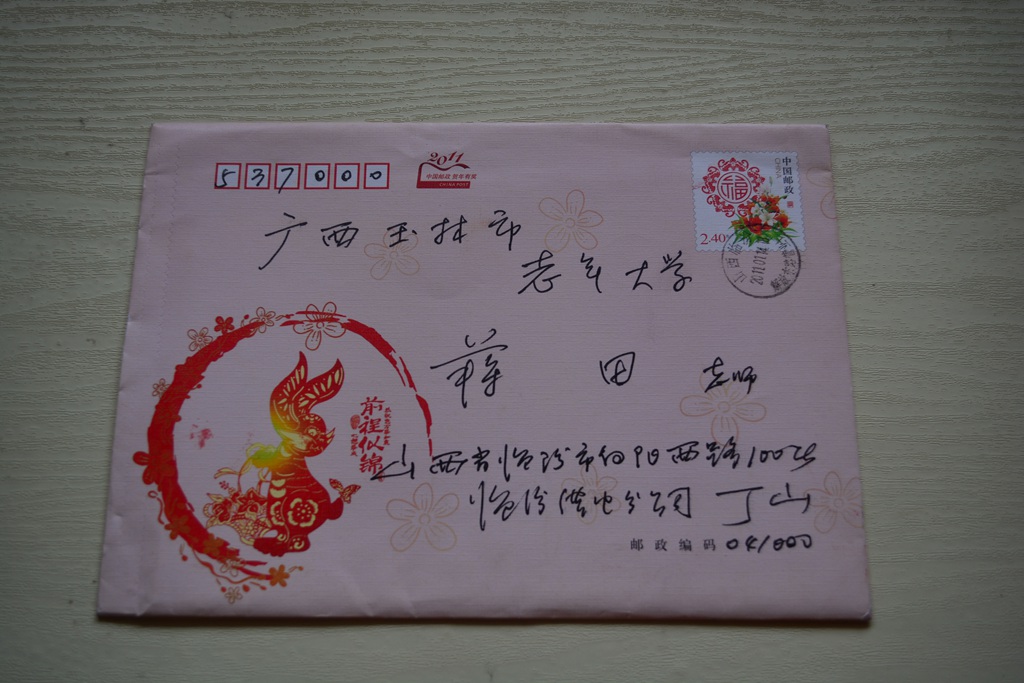 537000
2011
中国邮政 贺年有奖
CHINA POST
中国邮政
CHINA
2.40元
2011.01.14
广西玉林市
老年大学
蒋 田 老师
前程似锦
山西省临汾市向阳西路100号
临汾供电分公司 丁山
邮政编码 041000